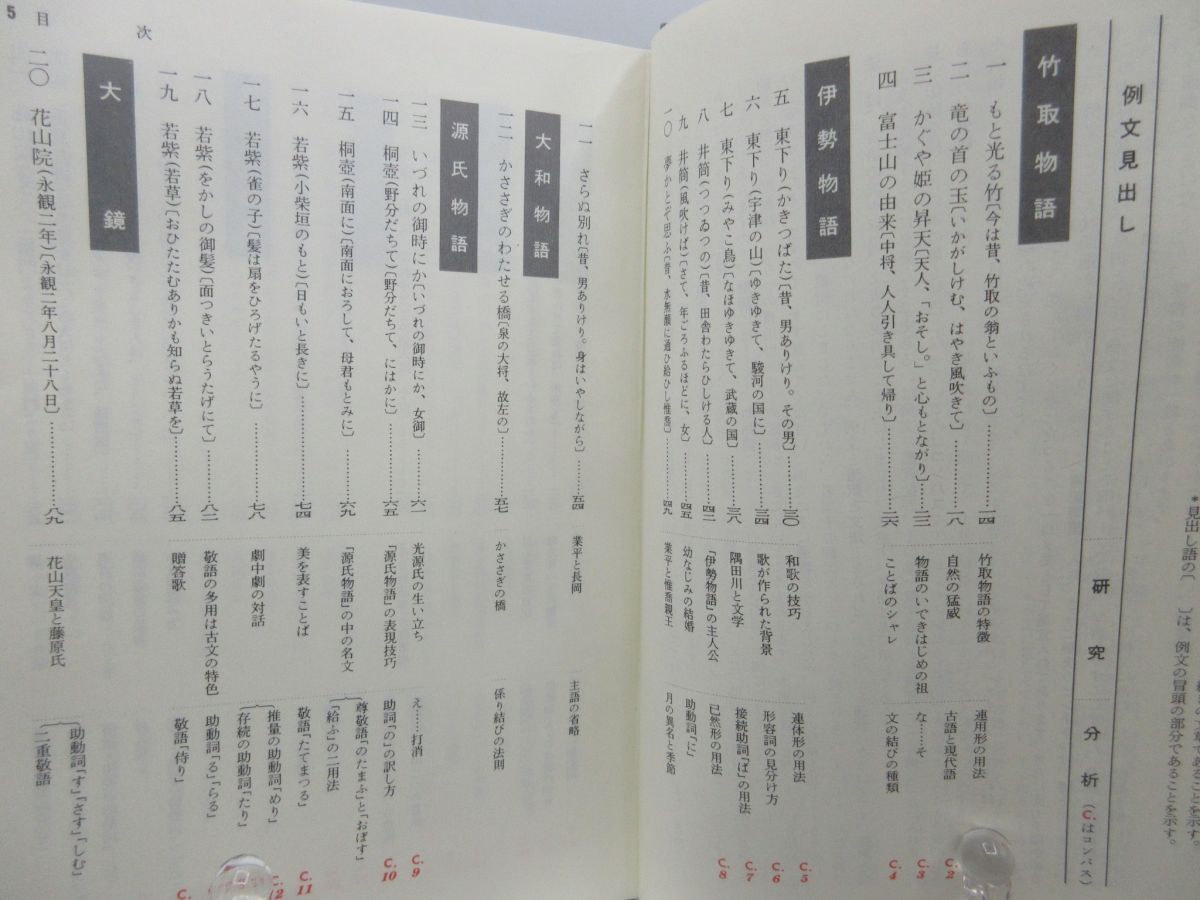 例文見出し
研究
分析(C.はコンパス)
*見出し語の〔　〕は、例文の冒頭の部分であることを示す。
竹取物語
一　もと光る竹〔今は昔、竹取の翁といふもの〕………一四　竹取物語の特徴　連用形の用法
二　竜の首の玉〔いかがしけむ、はやき風吹きて〕………一八　自然の猛威　古語と現代語　C.2
三　かぐや姫の昇天〔天人、「おそし。」と心もとながり〕………二三　物語のいできはじめの祖　な……そ　C.3
四　富士山の由来〔中将、人人引き具して帰り〕………二六　ことばのシャレ　文の結びの種類　C.4
伊勢物語
五　東下り(かきつばた)〔昔、男ありけり。その男〕………三〇　和歌の技巧　連体形の用法　C.5
六　東下り(宇津の山)〔ゆきゆきて、駿河の国に〕………三四　歌が作られた背景　形容詞の見分け方　C.6
七　東下り(みやこ鳥)〔なほゆきゆきて、武蔵の国〕………三八　隅田川と文学　接続助詞「ば」の用法　C.7
八　井筒(つつゐつの)〔昔、田舎わたらひしける人〕………四二　「伊勢物語」の主人公　已然形の用法　C.8
九　井筒(風吹けば)〔さて、年ごろふるほどに、女〕………四五　幼なじみの結婚　助動詞「に」
一〇　夢かとぞ思ふ〔昔、水無瀬に通ひ給ひし惟喬〕………四九　業平と惟喬親王　月の異名と季節
5　目次
一一　さらぬ別れ〔昔、男ありけり。身はいやしながら〕………五四　業平と長岡　主語の省略
大和物語
一二　かささぎのわたせる橋〔泉の大将、故左の〕………五七　かささぎの橋　係り結びの法則
源氏物語
一三　いづれの御時にか〔いづれの御時にか、女御〕………六一　光源氏の生い立ち　え……打消　C.9
一四　桐壺(野分だちて)〔野分だちて、にはかに〕………六五　「源氏物語」の表現技巧　助詞「の」の訳し方　C.10
一五　桐壺(南面に)〔南面におろして、母君もとみに〕………六九　「源氏物語」の中の名文　尊敬語「のたまふ」と「おぼす」　「給ふ」の二用法
一六　若紫(小柴垣のもと)〔日もいと長きに〕………七四　美を表すことば　敬語「たてまつる」　C.11
一七　若紫(雀の子)〔髪は扇をひろげたるやうに〕………七八　劇中劇の対話　推量の助動詞「めり」　存続の助動詞「たり」　C.12
一八　若紫(をかしの御髪)〔面つきいとらうたげにて〕………八二　敬語の多用は古文の特色　助動詞「る」「らる」
一九　若紫(若草)〔おひたたむありかも知らぬ若草を〕………八五　贈答歌　敬語「侍り」　C.
大鏡
二〇　花山院(永観二年)〔永観二年八月二十八日〕………八九　花山天皇と藤原氏　助動詞「す」「さす」「しむ」　二重敬語